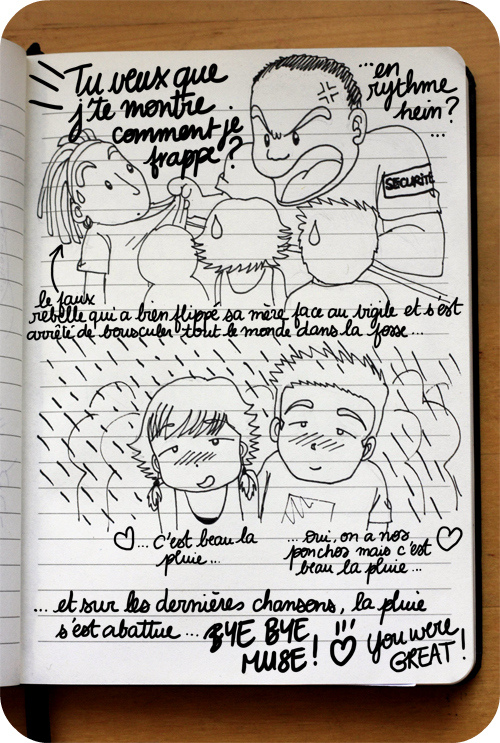 Tu veux que
j'te montre
comment je
frappe ?
...en
rythme
hein ?
...
SÉCURITÉ
le faux
rebelle qui a bien flippé sa mère face au vigile et s'est
arrêté de bousculer tout le monde dans la fosse...
♡... c'est beau la
pluie...
... oui, on a nos ♡
ponchos mais c'est
beau la pluie...
... et sur les dernières chansons, la pluie
s'est abattue... BYE BYE
MUSE ! !!! ♡ You were
GREAT !